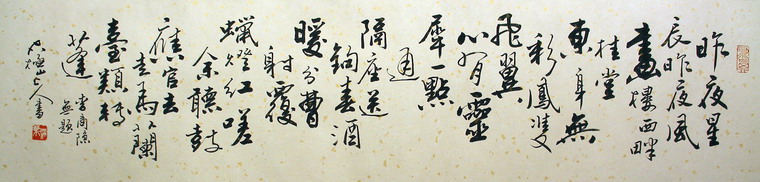 昨夜星
辰昨夜風
畫樓西畔
桂堂
東身無
彩鳳雙
飛翼
心有靈
犀一點
通
隔座送
鉤春酒
暖分曹
射覆
蠟燈紅嗟
余聽鼓
應官去
走馬蘭
臺類轉
蓬
李商隱
無題
山人書